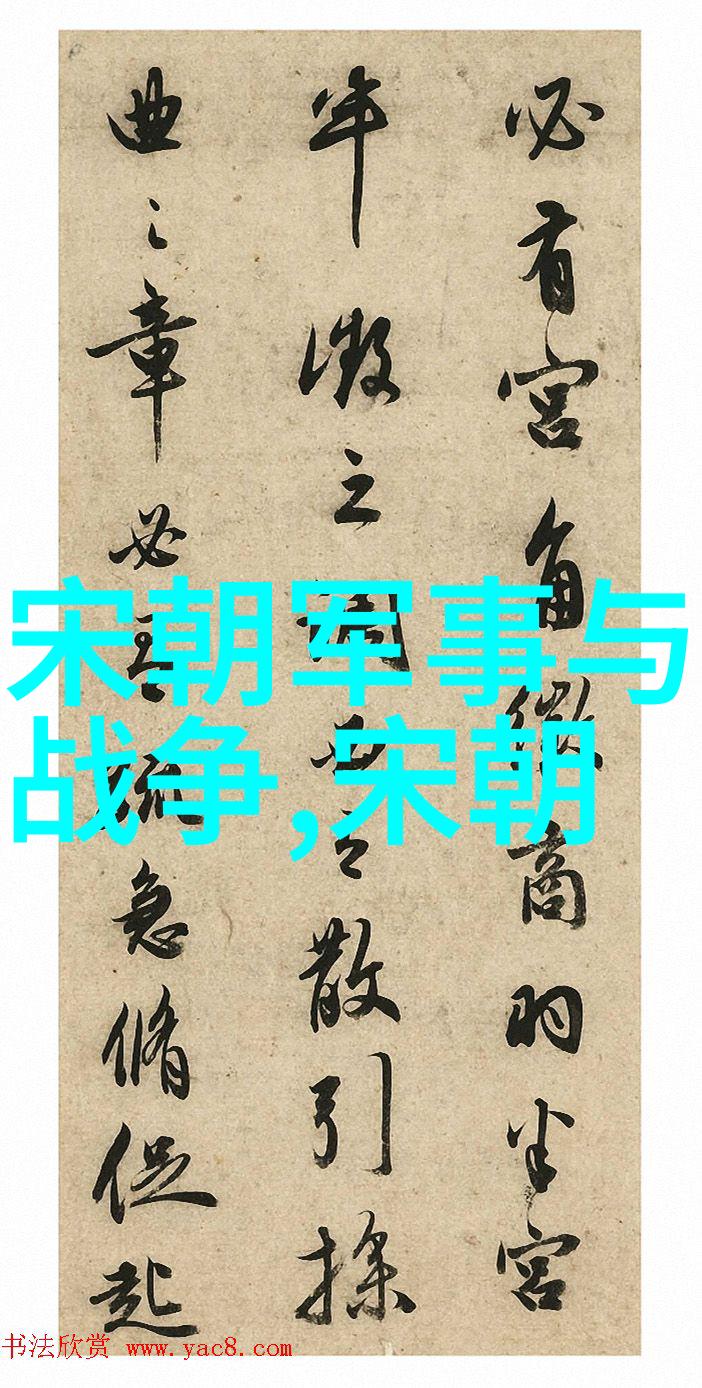 必有宮角徵商羽半宮
半徵之調之散引操
曲之章必急脩促起
宋朝军事与
战争,宋朝
书法欣赏 www.yac8.com